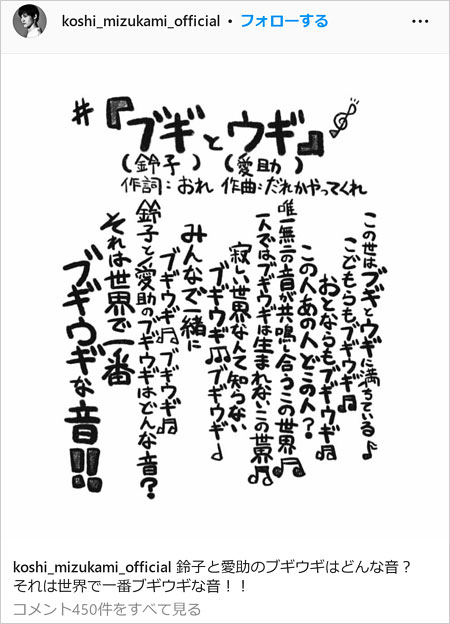 koshi_mizukami_official • フォローする
#『ブギとウギ』
(鈴子) (愛助)
作詞:おれ 作曲:だれかやってくれ
この世はブギとウギに満ちている♪
こどもらもブギウギ♫
おとならもブギウギ♫
この人あの人どの人?
唯一無二の音が共鳴し合うこの世界♫
一人ではブギウギは生まれないこの世界♫
寂しい世界なんて知らない
ブギウギ♫ブギウギ♩
みんなで一緒に
ブギウギ♫ブギウギ♫
鈴子と愛助のブギウギはどんな音?
それは世界で一番
ブギウギな音!!
koshi_mizukami_official 鈴子と愛助のブギウギはどんな音?
それは世界で一番ブギウギな音!!
コメント450件をすべて見る